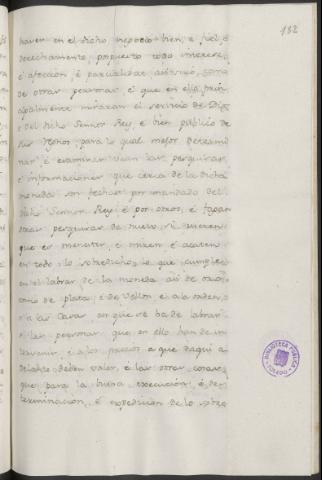 182
haver en el dicho negocio bien, é fiel, é
derechamente, propuesto todo interese,
é afeccion, é parcialidad, asi suyo, como
de otras personas, é que en ello prin-
cipalmente miraran el servicio de Dios
e del dicho Sennor Rey, é bien publico de
sus regnos, para lo qual mejor determi-
nar, é examinar vean las pesquisas,
é informaciones que cerca de la dicha
moneda son fechas por mandado del
dicho Sennor Rey, é por otros, é fagan
otras pesquisas de nuevo, si vieren
que es menester, é miren é acaten
en todo lo sobredicho, lo que cumple
en el labrar de la moneda asi de oro,
como de plata, é de vellon, é a la orden,
é a las Casas en que se ha de labrar,
é las personas que en ello han de in-
tervenir, é a los precios a que daqui a
delante deben valer, é las otras cosas,
que para la buena execucion, é de-
terminacion, é expedicion de lo sobre
BIBLIOTECA PUBLICA
TOLEDO